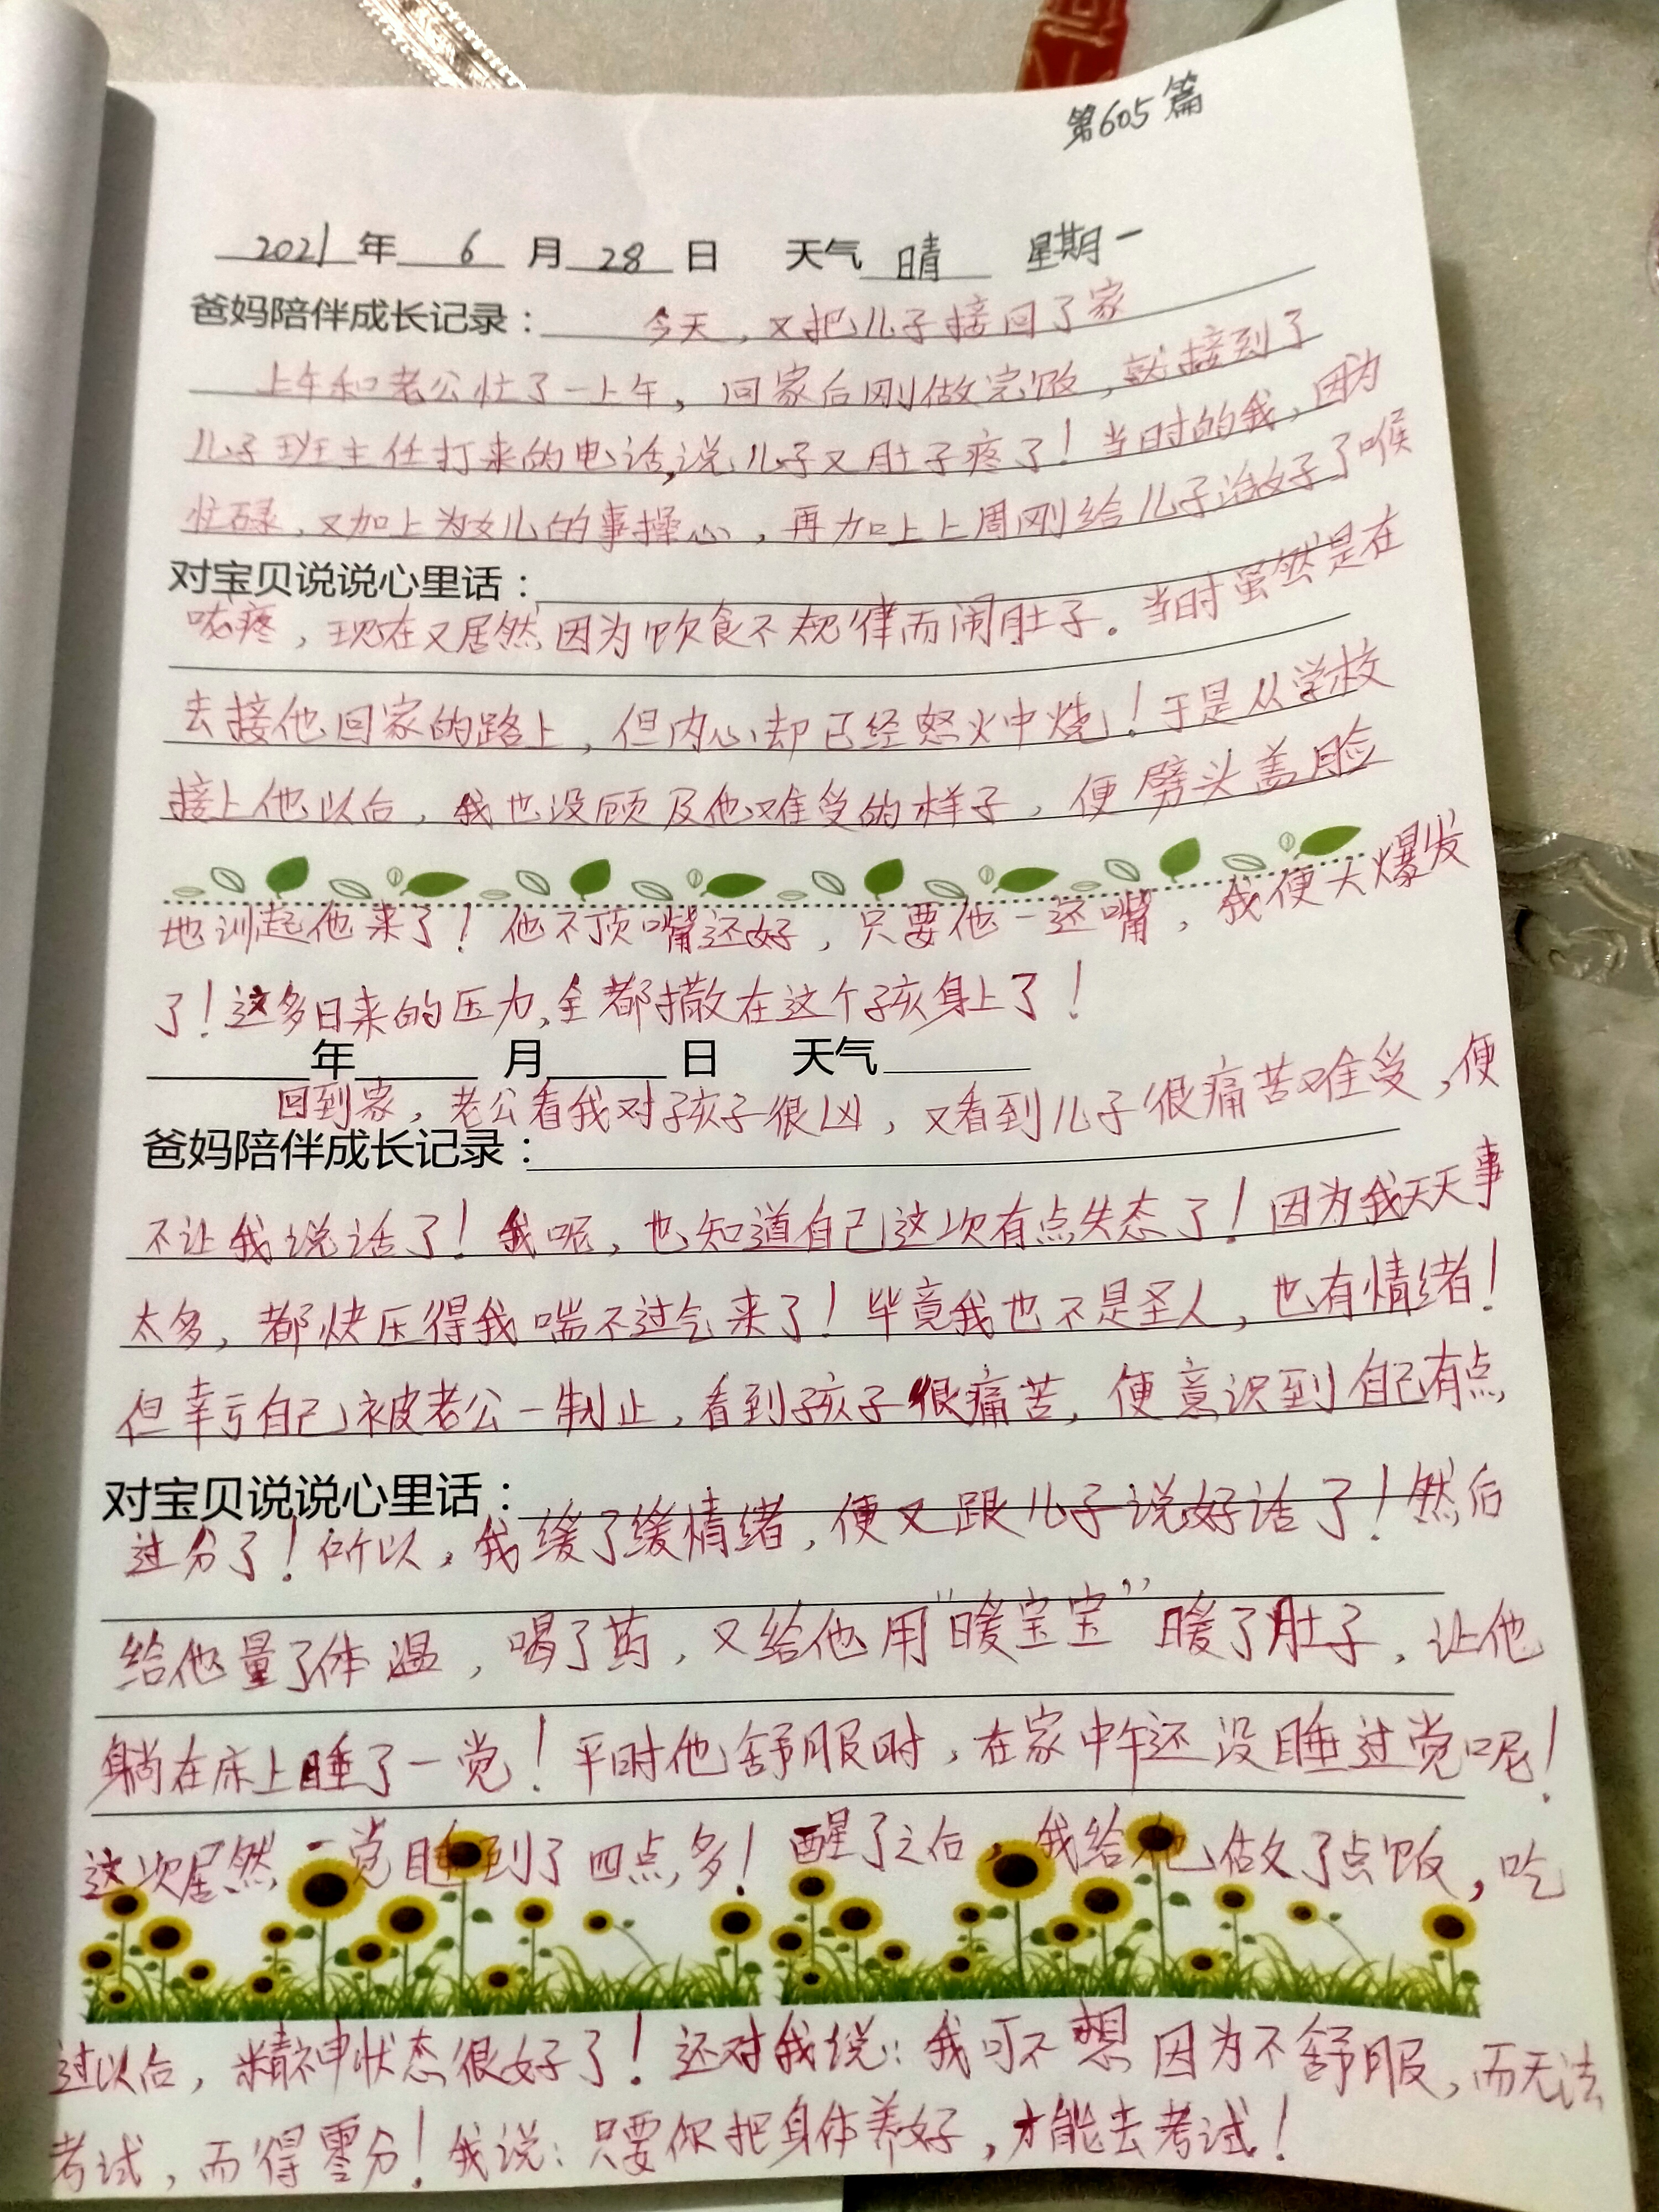 第605篇
2021年 6 月 28 日 天气 晴 星期一
爸妈陪伴成长记录： 今天，又把儿子接回了家
上午和老公忙了一上午，回家后刚做完饭，就接到了
儿子班主任打来的电话，说儿子又肚子疼了！当时的我，因为
忙碌，又加上为女儿的事操心，再加上上周刚给儿子治好了喉
对宝贝说说心里话：
咙疼，现在又居然因为饮食不规律而闹肚子。当时虽然是在
去接他回家的路上，但内心却已经怒火中烧！于是从学校
接上他以后，我也没顾及他难受的样子，便劈头盖脸
地训起他来了！他不顶嘴还好，只要他一还嘴，我便大爆发
了！这多日来的压力，全都撒在这个孩身上了！
年 月 日 天气
回到家，老公看我对孩子很凶，又看到儿子很痛苦难受，便
爸妈陪伴成长记录：
不让我说话了！我呢，也知道自己这次有点失态了！因为我天天事
太多，都快压得我喘不过气来了！毕竟我也不是圣人，也有情绪！
但幸亏自己被老公一制止，看到孩子很痛苦，便意识到自己有点
对宝贝说说心里话：
过分了！所以，我缓了缓情绪，便又跟儿子说好话了！然后
给他量了体温，喝了药，又给他用“暖宝宝”暖了肚子，让他
躺在床上睡了一觉！平时他舒服时，在家中午还没睡过觉呢！
这次居然一觉睡到了四点多！醒了之后，我给他做了点饭，吃
过以后，精神状态很好了！还对我说：我可不想因为不舒服，而无法
考试，而得零分！我说：只要你把身体养好，才能去考试！